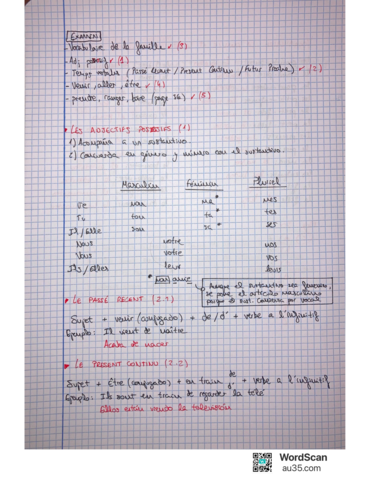 EXAMEN
- Vocabulaire de la famille ✓ (3)
- Adj. possessif ✓ (1)
- Temps verbales (Passé Récent / Présent Continu / Futur Proche) ✓ (2)
- Venir, aller, être ✓ (4)
- prendre, ranger, (page 36) ✓ (5)
• LES ADJECTIFS POSSESSIFS (1)
1) Acompaña a un sustantivo.
2) Concuerda en género y número con el sustantivo.
Masculin Féminin Pluriel
Je mon ma* mes
Tu ton ta* tes
Il/Elle son sa* ses
Nous notre nos
Vous votre vos
Ils/Elles leur leurs
Aunque el sustantivo sea femenino,
se pone el artículo masculino
porque el sust. comienza por vocal.
• LE PASSÉ RÉCENT (2.1)
Sujet + venir (conjugado) + de/d' + verbe a l'infinitif
Ejemplo: Il vient de naître
Acaba de nacer
• LE PRÉSENT CONTINU (2.2)
Sujet + être (conjugado) + en train de d' + verbe a l'infinitif
Ejemplo: Ils sont en train de regarder la télé
Ellos están viendo la televisión
WordScan
au35.com